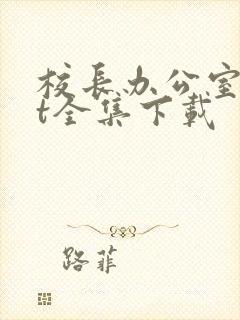 校长办公室
t全集下载
路菲